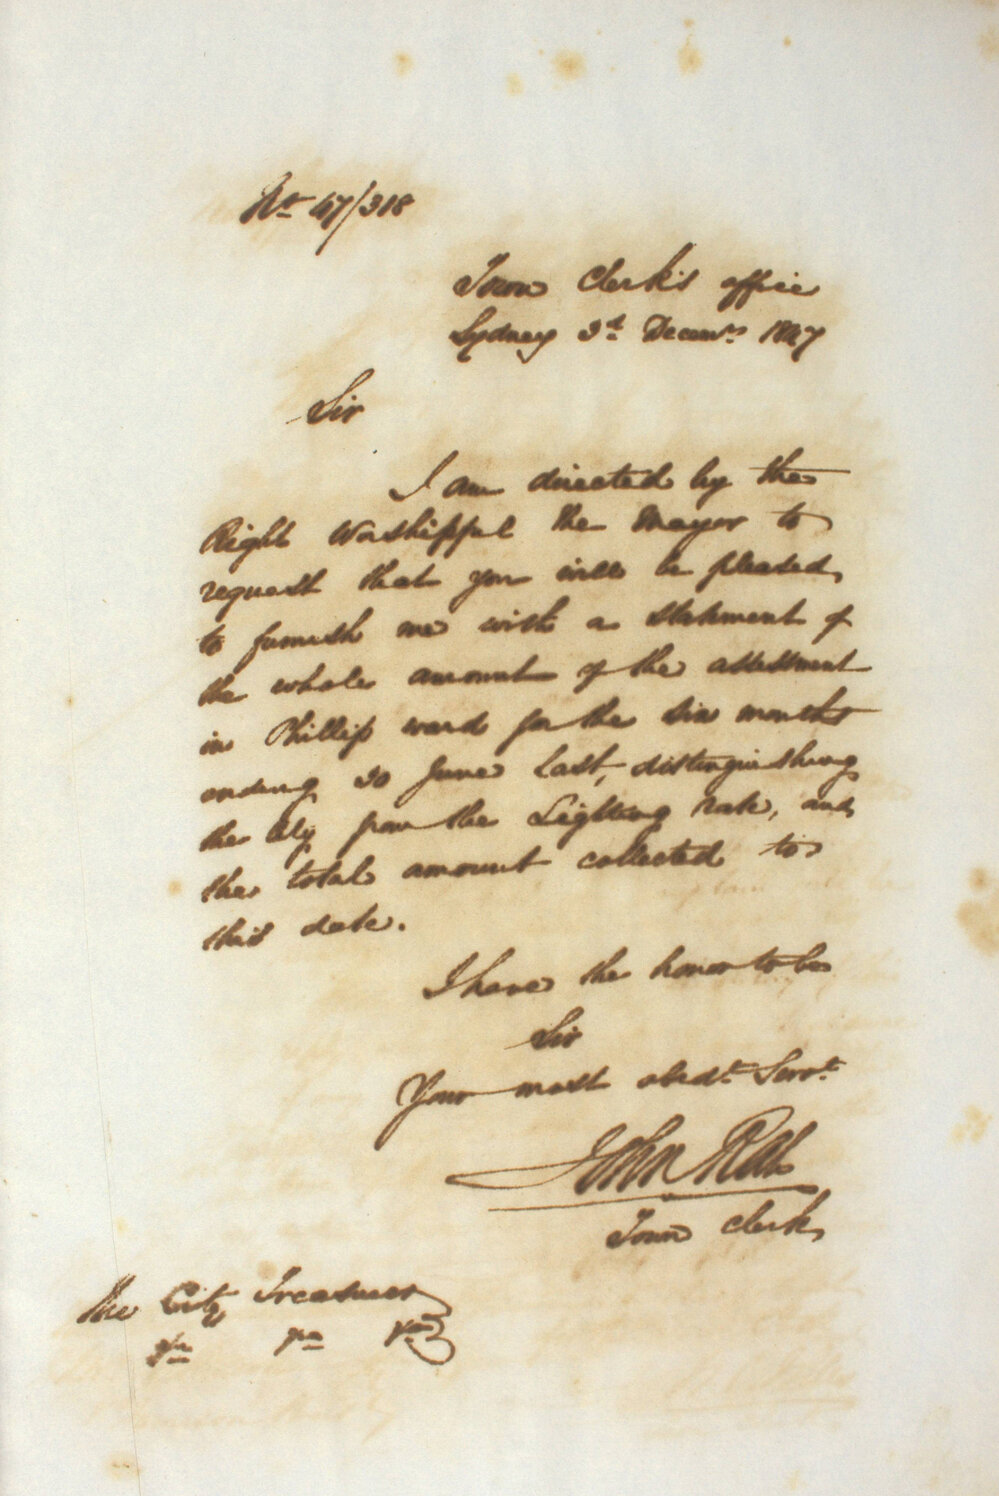 No 47/318
Town Clerk's office
Sydney 3d Decemr 1847
Sir
I am directed by the
Right Worshipful the Mayor to
request that you will be pleased
to furnish me with a statement of
the whole amount of the assessment
in Phillip ward for the six months
ending 30 June last, distinguishing
the City from the Lighting Rate, and
the total amount collected to
this date.
I have the honor to be
Sir
Your most obedt Servt
John Rae
Town Clerk
The City Treasurer